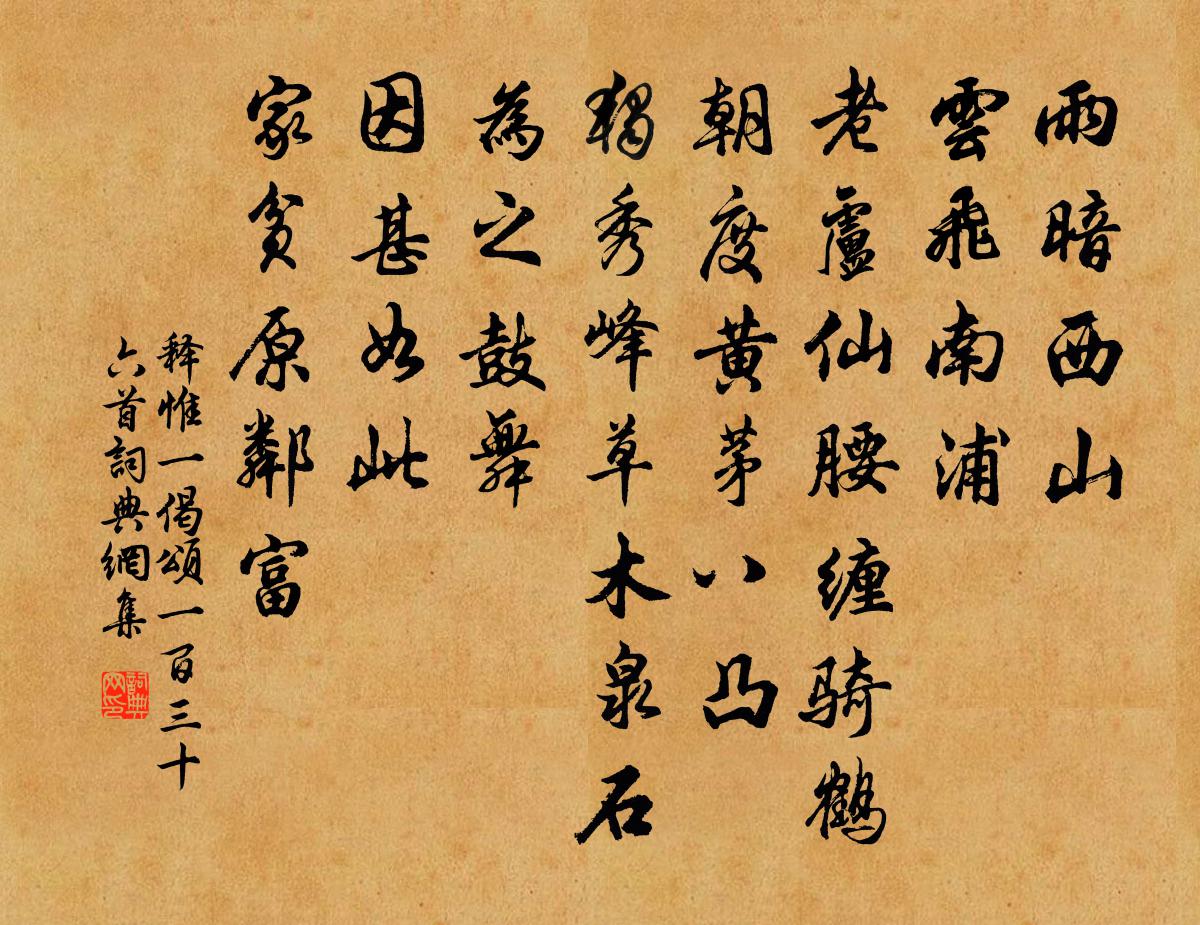 雨暗西山
雲飛南浦
老盧仙腰缠騎鶴
朝度黃茅八凸
獨秀峰草木泉石
為之鼓舞
因甚如此
家貧原鄰富
释惟一偈頌一百三十
六首詞典網集
詞典網印